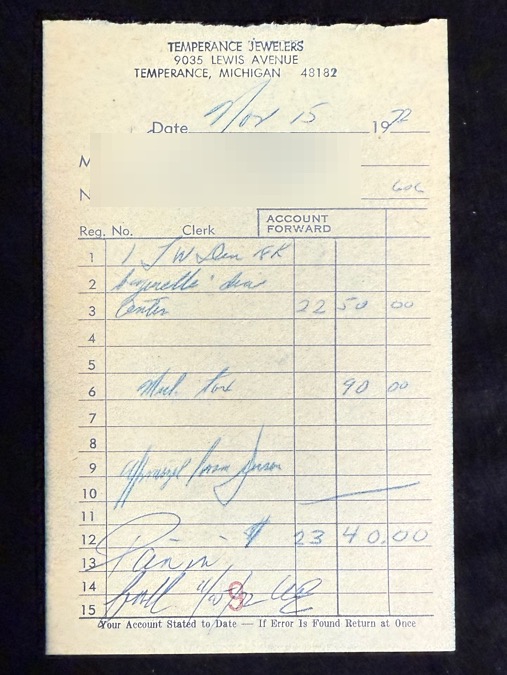 TEMPERANCE JEWELERS
9035 LEWIS AVENUE
TEMPERANCE, MICHIGAN 48182
Date Nov 15 1972
M
N
606
Reg. No. Clerk ACCOUNT FORWARD
1 1 L W Dia
2 baguette dia
3 Center 22 50 00
4
5
6 Mich. tax 90 00
7
8
9
10
11
12 $ 23 40.00
13 Paid in
14 full
15
Your Account Stated to Date — If Error Is Found Return at Once